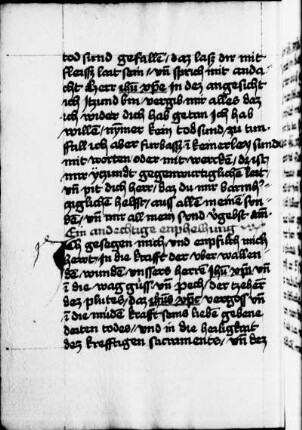 tod sund gefallen / daz laß dir mit
fleiss lait sein / vn̄ sprich mit anda
cht Herr ihū xp̄e in dez angesicht
ich Itzund bin / vergib mir alles daz
ich wider dich hab getan Ich hab
willen / nȳmer kein todsund zu tun
ffall ich aber furbasz in keinerley sund
mit worten oder mit wercken / da ist
mir yczundt gegenwurtigliche lait /
vn̄ pit dich herr / daz du mir barmh
ertziglichen helfst / aus allē meinē sun
den / vn̄ mir all mein sund v̄gebst am̄
Ein andechtige enpfelhung
Ich gesegen mich / und enpfilch mich
hewt / in die krafft der vber wallen
dē wunden vnsers herren Ihū xp̄i vn̄
ī die wag guss / vn̄ pech / der
dez plutes / daz ihūs xp̄e vergos vn̄
ī die kraft seins lieben
todes / vnd in die heiligkait
dez krefftigen sacraments / vn̄ dez